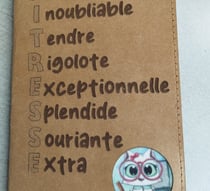 I Inoubliable
T Tendre
R Rigolote
E Exceptionnelle
S Splendide
S Souriante
E Extra